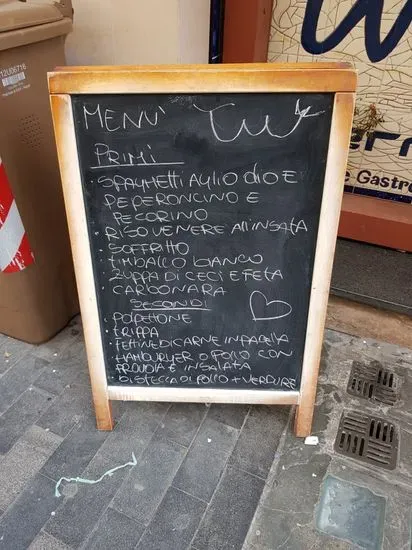 12U06716
MENU'
PRIMI
· SPAGHETTI AGLIO OLIO E
PEPERONCINO E
PECORINO
· RISO VENERE ALL'INSATA
· SOFFRITTO
· TIMBALLO BIANCO
· ZUPPA DI CECI E FETA
CARBONARA
SECONDI
· POLPETTONE
· TRIPPA
· FETTINE DI CARNE IN PADELLA
· HAMBURGER O POLLO CON
PROVOLA E INSALATA
· BISTECCA DI POLLO + VERDURE
e Gastro